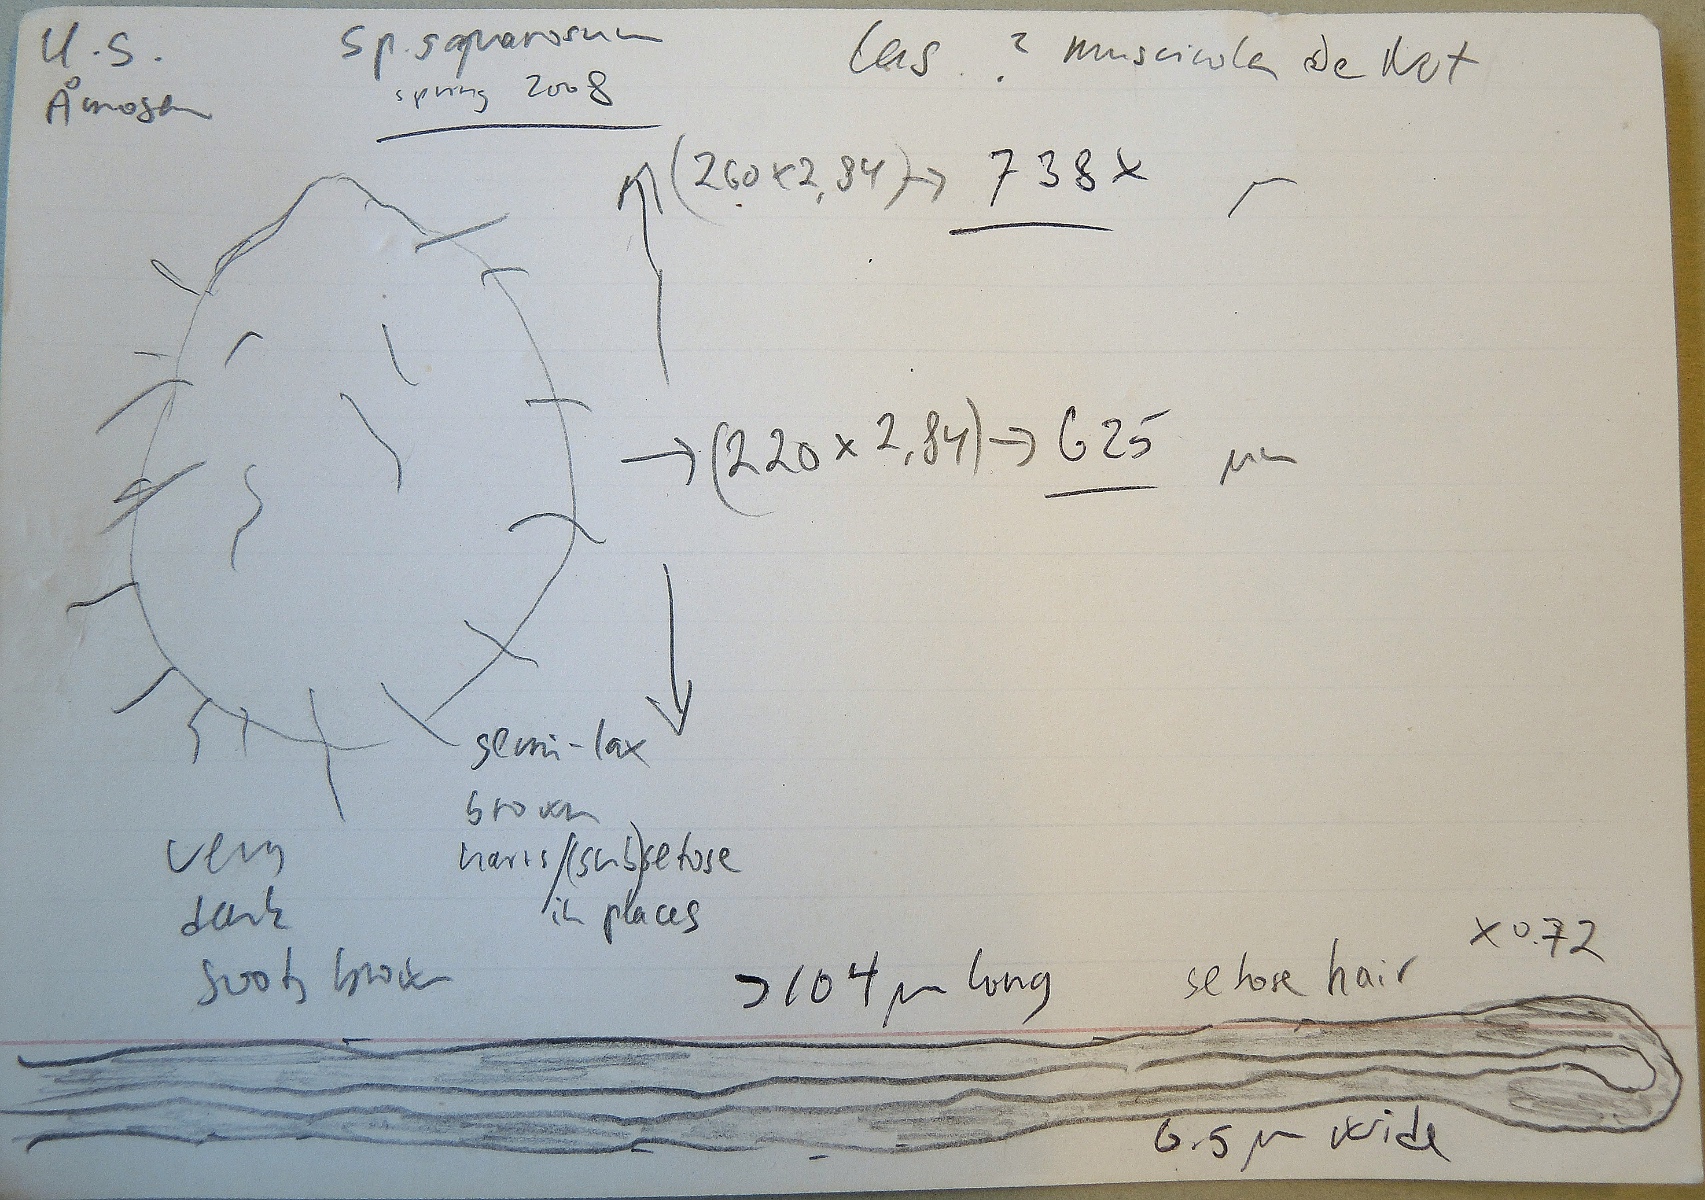 U.S.
Åmosen
Sp. squarosum
spring 2008
Las. ? muscicola de Not
(260 x 2,84) → 738 x
→ (220 x 2,84) → 625 µm
semi-lax
brown
hairs/(sub)setose
in places
very
dark
sooty brown
>104 µm long
setose hair
x 0.72
6.5 µm wide